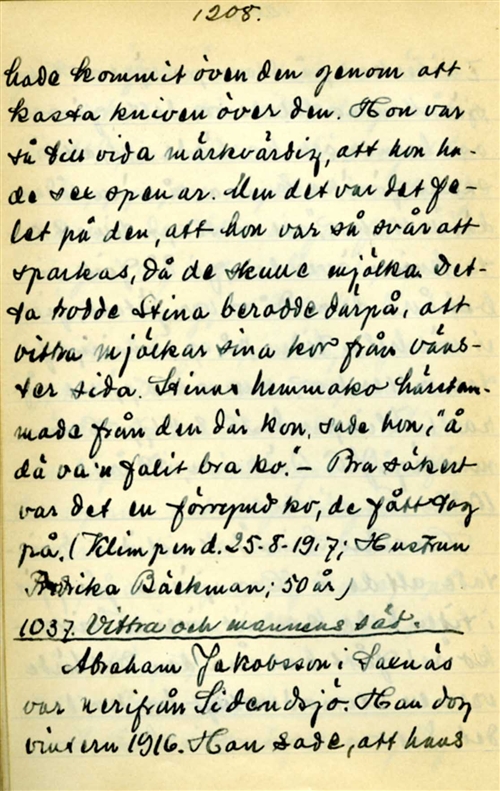 1208.
hade kommit över den genom att
kasta kniven över den. Hon var
så till vida märkvärdig, att hon ha-
de sex spenar. Men det var det fe-
let på den, att hon var så svår att
sparkas, då de skulle mjölka. Det-
ta trodde Stina berodde därpå, att
vittra mjölkar sina kor från väns-
ter sida. Stinas hemmako härstam-
made från den där kon, sade hon, "å
dä va'n falit bra ko." – Bra säkert
var det en förrymd ko, de fått tag
på. (Klimpen d. 25-8-1917; Hustrun
Fredrika Bäckman; 50 år)
1037. Vittra och mannens säd.
Abraham Jakobsson i Saxnäs
var nerifrån Sidensjö. Han dog
vintern 1916. Han sade, att hans